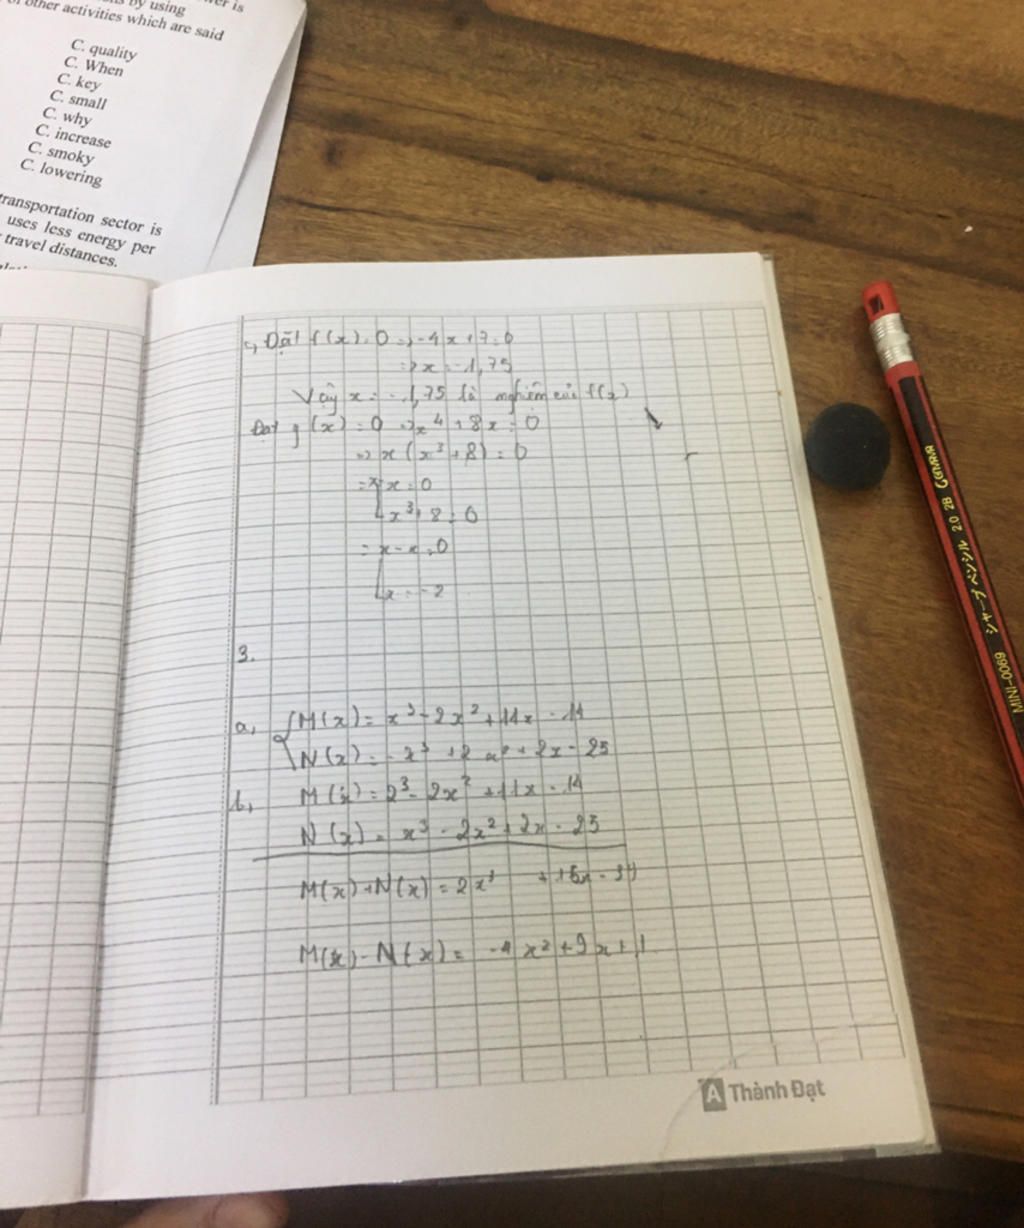 by using
of other activities which are said
C. quality
C. When
C. key
C. small
C. why
C. increase
C. smoky
C. lowering
transportation sector is
uses less energy per
travel distances.
c, Đặt f(x) = 0 => -4x + 7 = 0
=> x = -1,75
Vậy x = -1,75 là nghiệm của f(x)
Đặt g(x) = 0 => x⁴ + 8x = 0
=> x(x³ + 8) = 0
=> [x = 0
x³ + 8 = 0
x = 0
x = -2
3.
a, M(x) = x³ - 2x² + 11x - 14
N(x) = - x³ + 2x² + 2x - 25
b, M(x) = 2³ - 2x² + 11x - 14
N(x) = x³ - 2x² + 2x - 25
M(x) + N(x) = 2x³
M(x) - N(x) = -4x² + 9x + 11
A Thành Đạt
MINI-0069 シャープペンシル 2.0 2B